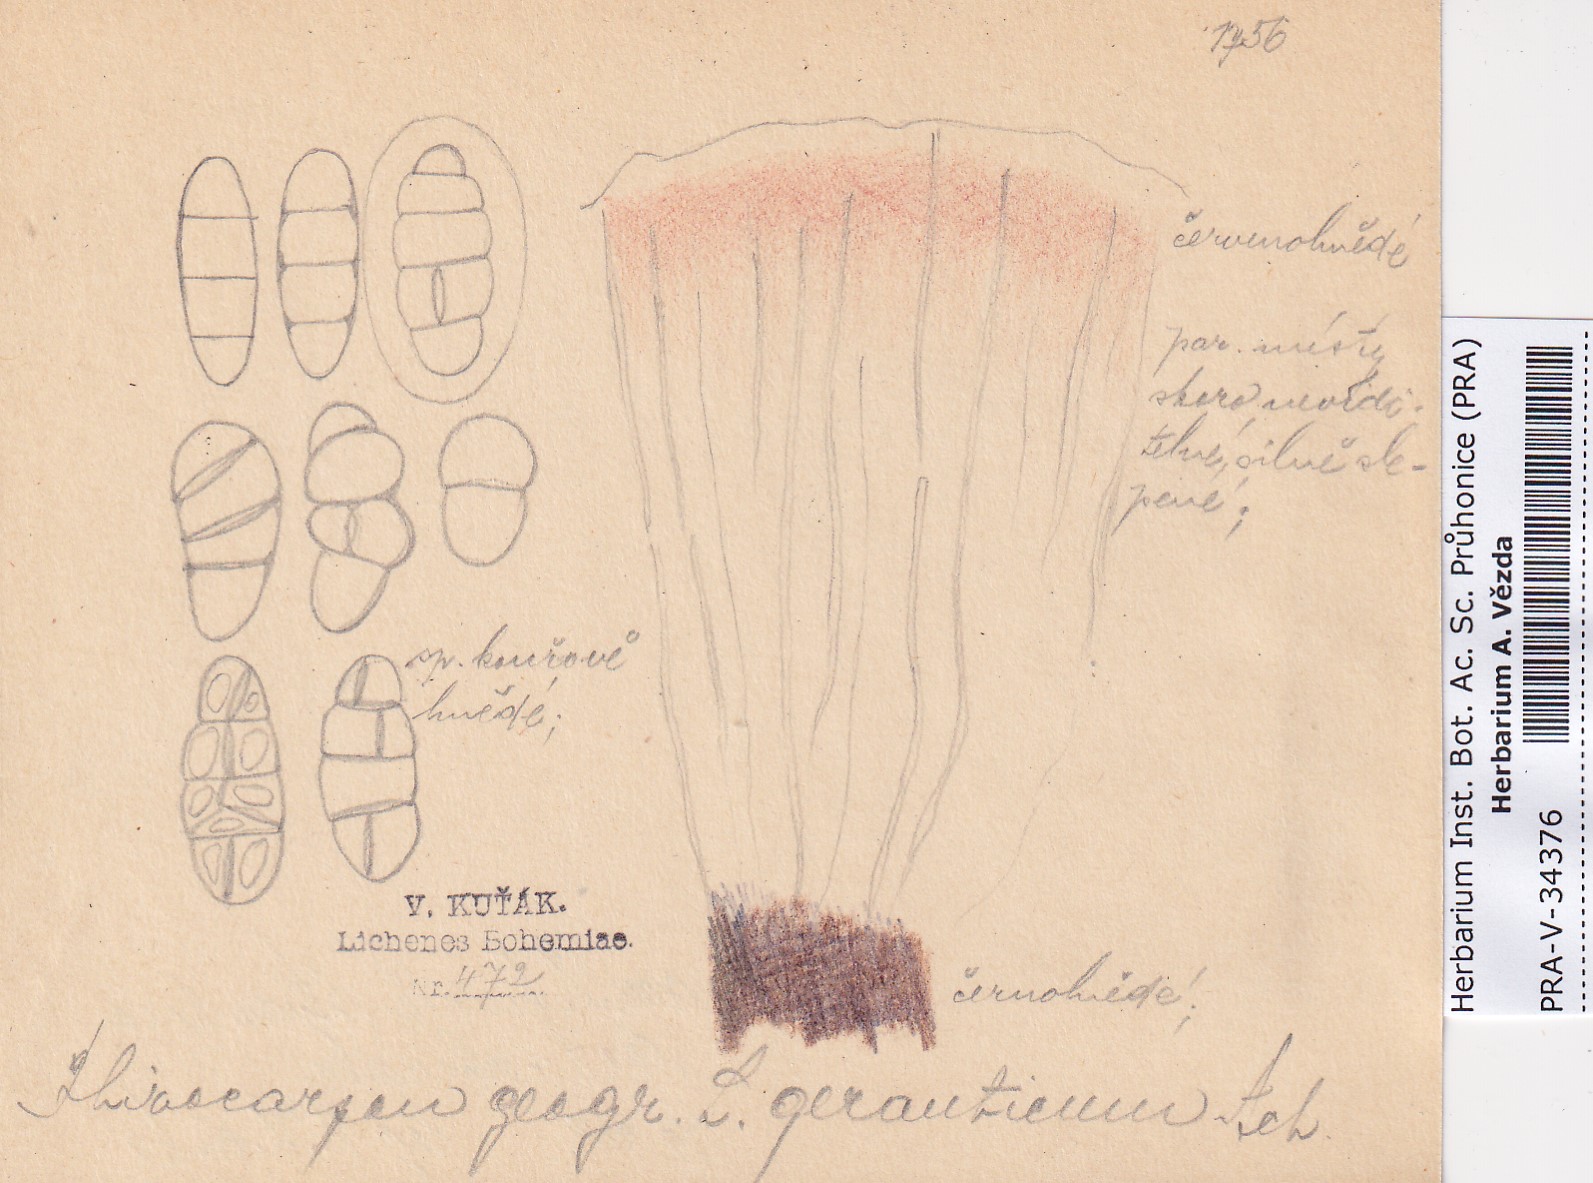 1956
červenohnědé
par. místy
skoro nevidi-
telné, silně sle-
pené;
sp. kouřově
hnědé;
V. KUŤÁK.
Lichenes Bohemiae.
Nr. 472
černohnědé;
Rhizocarpon geogr. L. geronticum Ach.
Herbarium Inst. Bot. Ac. Sc. Průhonice (PRA)
Herbarium A. Vězda
PRA-V-34376